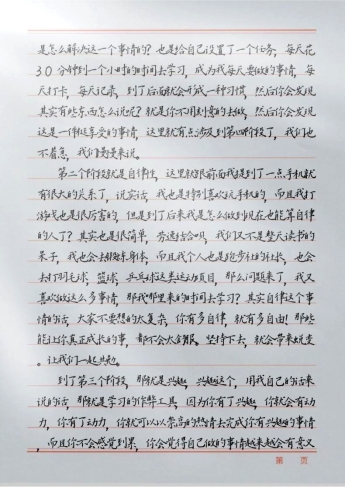 是怎么解决这一个事情的？也是给自己设置了一个任务，每天花
30分钟到一个小时的时间去学习，成为我每天要做的事情，每
天打卡，每天记录，到了后面就会形成一种习惯，然后你会发现
其实有些东西怎么说呢？就是你不用刻意的去做，然后你会发现
这是一件很享受的事情，这里就有点涉及到第四阶段了，我们也
不着急，我们慢慢来说。
第二个阶段就是自律性，这里就跟前面我提到了一点手机就
有很大的关系了，说实话，我也是特别喜欢玩手机的，而且我打
游戏也是很厉害的，但是到了后来我是怎么做到现在也能算自律
的人了？其实也是很简单，劳逸结合呗，我们又不是整天读书的
呆子，我也会去锻炼身体，而且我个人也是跑步社的社长，也会
去打羽毛球，篮球，乒乓球这些运动项目，那么问题来了，我又
喜欢做这么多事情，那我那里来的时间去学习？其实自律这个事
情的话，大家不要想的太复杂，你有多自律，就有多自由！那些
能让你真正成长的事，都不会太舒服，坚持下去，就会带来蜕变
。让我们一起共勉。
到了第三个阶段，那就是兴趣，兴趣这个，用我自己的话来
说的话，那就是学习的作弊工具，因为你有了兴趣，你就会有动
力，你有了动力，你就可以以崇高的热情去完成你有兴趣的事情
，而且你不会感觉到累，你会觉得自己做的事情越来越会有意义
第 页